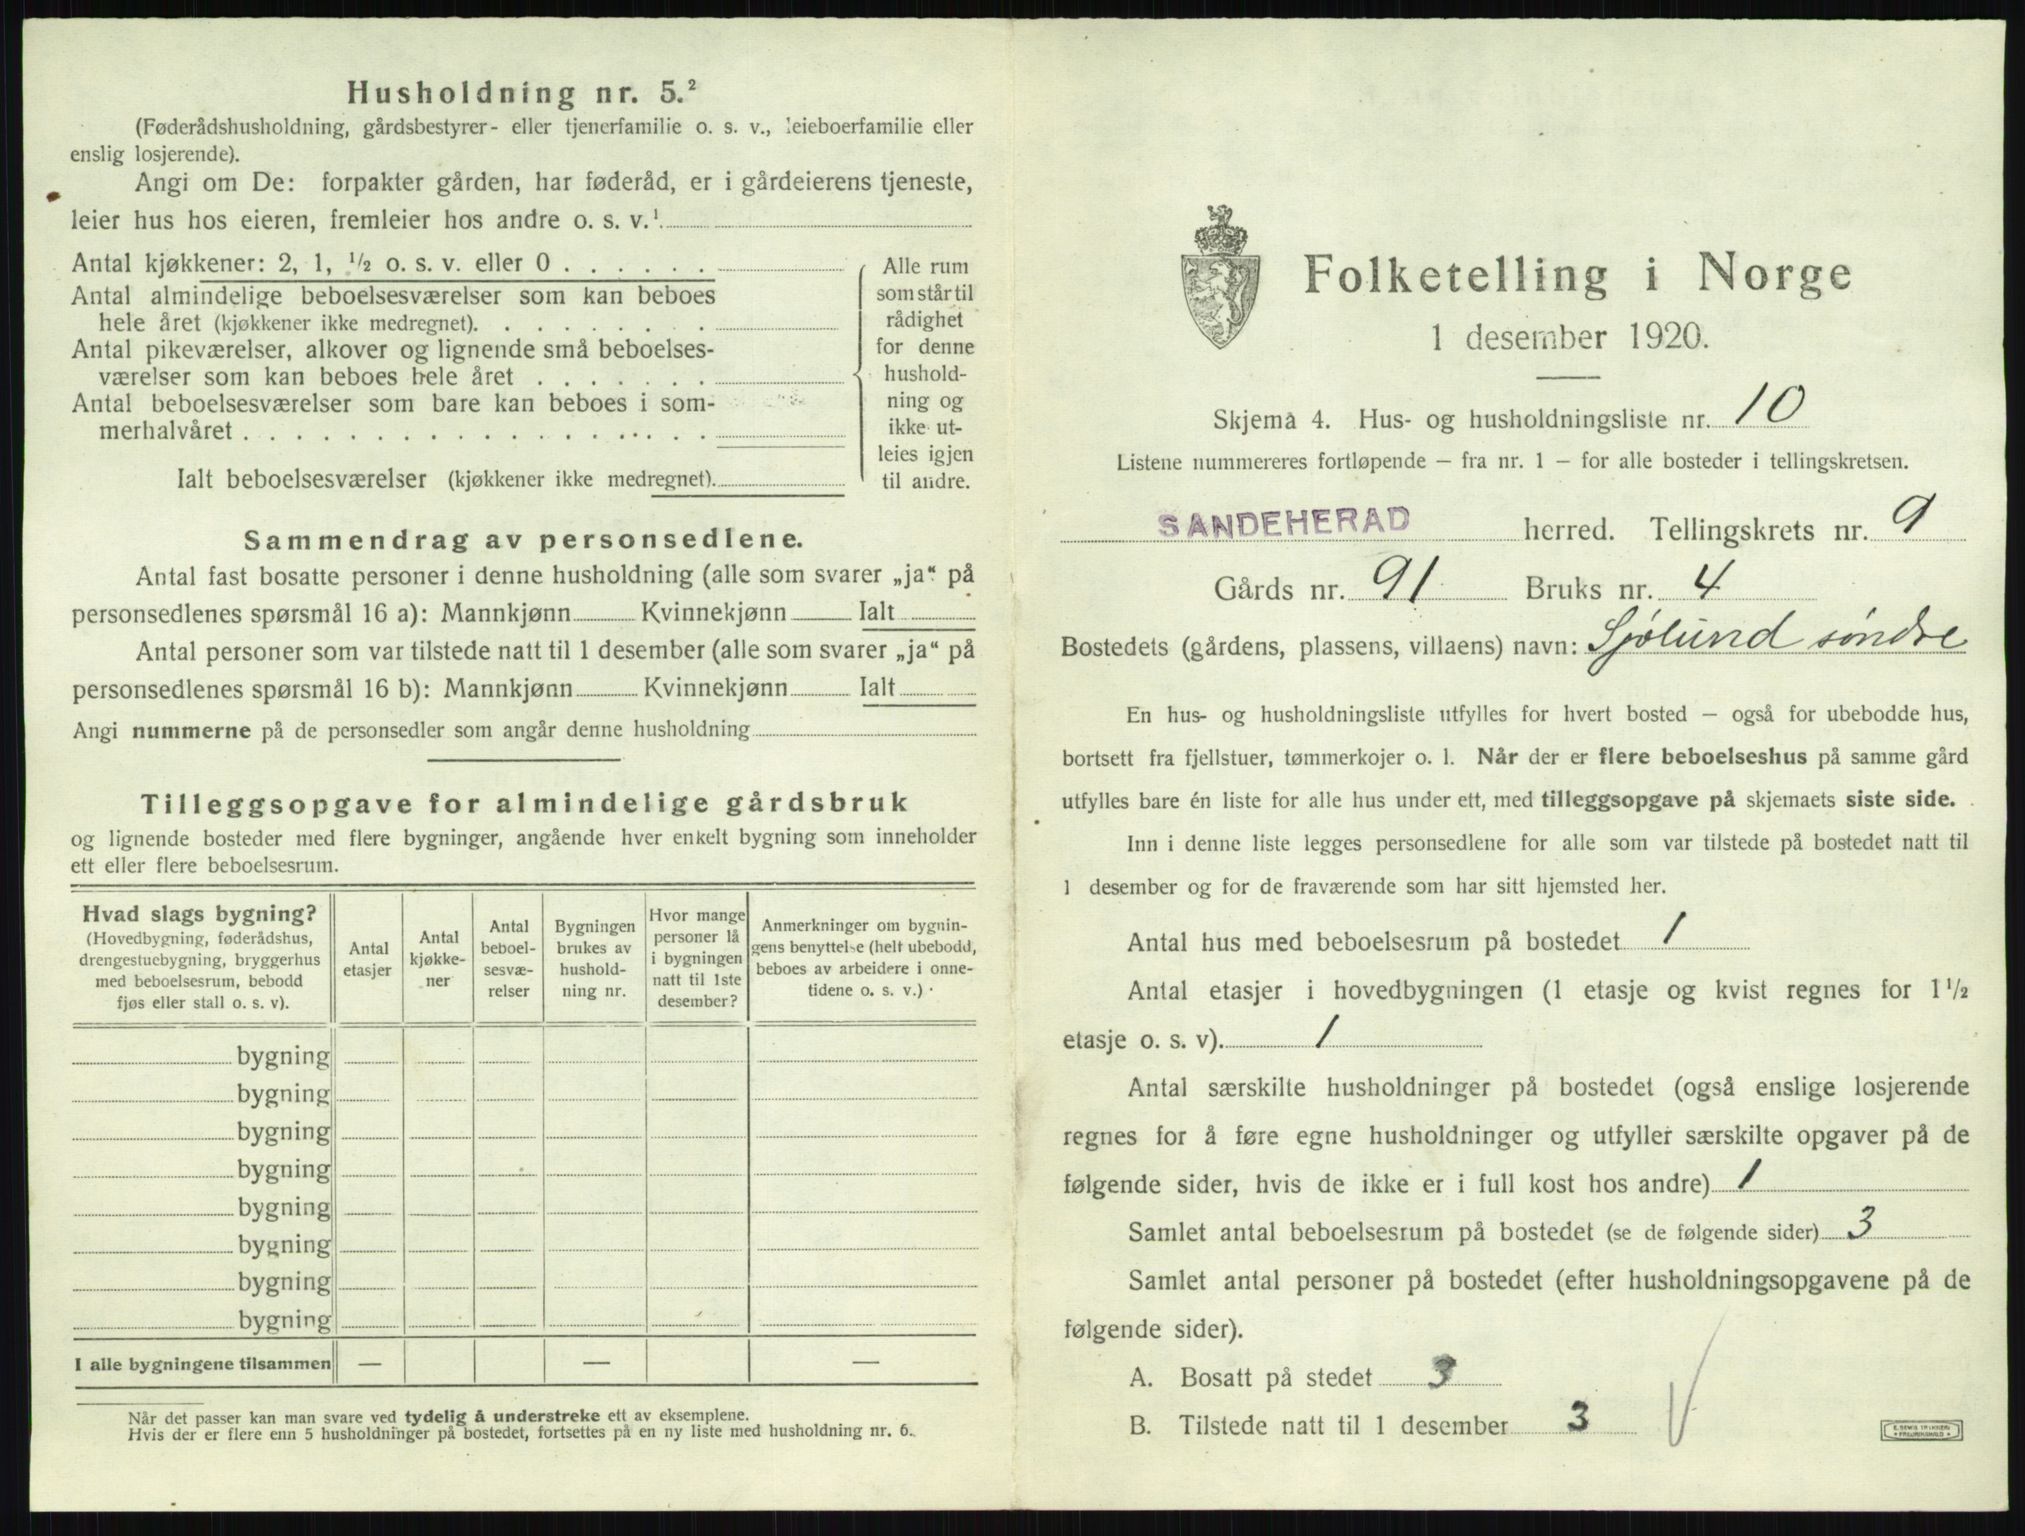 Husholdning nr. 5.²
(Føderådshusholdning, gårdsbestyrer- eller tjenerfamilie o. s. v., leieboerfamilie eller
enslig losjerende).
Angi om De: forpakter gården, har føderåd, er i gårdeierens tjeneste,
leier hus hos eieren, fremleier hos andre o. s. v.¹
Antal kjøkkener: 2, 1, ½ o. s. v. eller 0 . . . . . .
Antal almindelige beboelsesværelser som kan beboes
hele året (kjøkkener ikke medregnet). . . . . . . . .
Antal pikeværelser, alkover og lignende små beboelses-
værelser som kan beboes hele året . . . . . . .
Antal beboelsesværelser som bare kan beboes i som-
merhalvåret . . . . . . . . . . . . . . . . . .
Ialt beboelsesværelser (kjøkkener ikke medregnet).
Alle rum
som står til
rådighet
for denne
hushold-
ning og
ikke ut-
leies igjen
til andre.
Sammendrag av personsedlene.
Antal fast bosatte personer i denne husholdning (alle som svarer „ja“ på
personsedlenes spørsmål 16 a): Mannkjønn Kvinnekjønn Ialt
Antal personer som var tilstede natt til 1 desember (alle som svarer „ja“ på
personsedlenes spørsmål 16 b): Mannkjønn Kvinnekjønn Ialt
Angi nummerne på de personsedler som angår denne husholdning
Tilleggsopgave for almindelige gårdsbruk
og lignende bosteder med flere bygninger, angående hver enkelt bygning som inneholder
ett eller flere beboelsesrum.
Hvad slags bygning?
(Hovedbygning, føderådshus,
drengestuebygning, bryggerhus
med beboelsesrum, bebodd
fjøs eller stall o. s. v).
Antal
etasjer
Antal
kjøkke-
ner
Antal
beboel-
sesvæ-
relser
Bygningen
brukes av
hushold-
ning nr.
Hvor mange
personer lå
i bygningen
natt til 1ste
desember?
Anmerkninger om bygnin-
gens benyttelse (helt ubebodd,
beboes av arbeidere i onne-
tidene o. s. v.)
bygning
bygning
bygning
bygning
bygning
bygning
bygning
bygning
I alle bygningene tilsammen — — —
Når det passer kan man svare ved tydelig å understreke ett av eksemplene.
Hvis der er flere enn 5 husholdninger på bostedet, fortsettes på en ny liste med husholdning nr. 6.
Folketelling i Norge
1 desember 1920.
Skjema 4. Hus- og husholdningsliste nr. 10
Listene nummereres fortløpende — fra nr. 1 — for alle bosteder i tellingskretsen.
SANDEHERAD herred. Tellingskrets nr. 9
Gårds nr. 91 Bruks nr. 4
Bostedets (gårdens, plassens, villaens) navn: Sjølund søndre
En hus- og husholdningsliste utfylles for hvert bosted — også for ubebodde hus,
bortsett fra fjellstuer, tømmerkojer o. l. Når der er flere beboelseshus på samme gård
utfylles bare én liste for alle hus under ett, med tilleggsopgave på skjemaets siste side.
Inn i denne liste legges personsedlene for alle som var tilstede på bostedet natt til
1 desember og for de fraværende som har sitt hjemsted her.
Antal hus med beboelsesrum på bostedet 1
Antal etasjer i hovedbygningen (1 etasje og kvist regnes for 1½
etasje o. s. v). 1
Antal særskilte husholdninger på bostedet (også enslige losjerende
regnes for å føre egne husholdninger og utfyller særskilte opgaver på de
følgende sider, hvis de ikke er i full kost hos andre) 1
Samlet antal beboelsesrum på bostedet (se de følgende sider) 3
Samlet antal personer på bostedet (efter husholdningsopgavene på de
følgende sider).
A. Bosatt på stedet 3
B. Tilstede natt til 1 desember 3